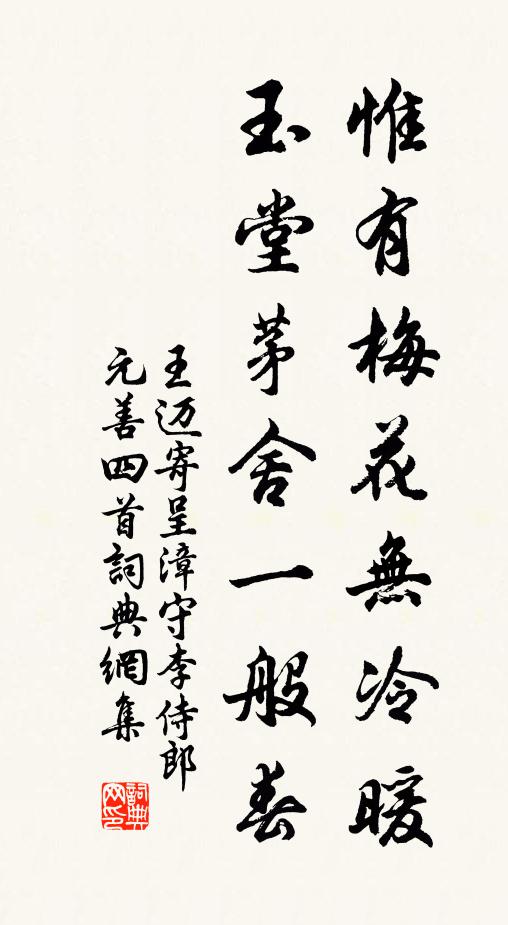 惟有梅花無冷暖
玉堂茅舍一般春
王迈寄呈漳守李侍郎
元善四首詞典網集
詞典网印